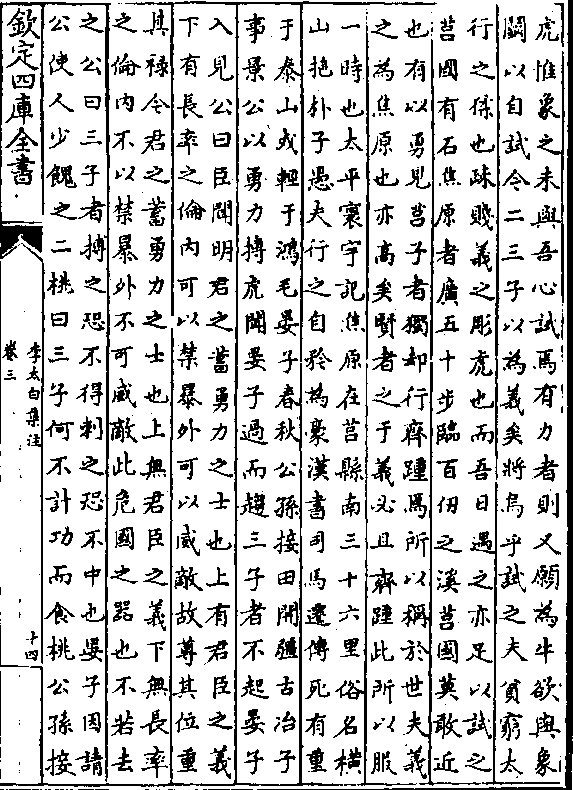 虎惟象之未與吾心試焉有力者則又願為牛欲與象
鬭以自試今二三子以為義矣將烏乎試之夫貧窮太
行之獶也疏賤義之彫虎也而吾日遇之亦足以試之
莒國有石焦原者廣五十步臨百仞之溪莒國莫敢近
也有以勇見莒子者獨却行齊踵焉所以稱於世夫義
之為焦原也亦高矣賢者之于義必且齊踵此所以服
一時也太平寰宇記焦原在莒縣南三十六里俗名横
山抱朴子憑夫行之自矜為豪漢書司馬遷傳死有重
于泰山或輕于鴻毛晏子春秋公孫接田開疆古冶子
事景公以勇力搏虎聞晏子過而趨三子者不起晏子
入見公曰臣聞明君之蓄勇力之士也上有君臣之義
下有長率之倫内可以禁暴外可以威敵故尊其位重
其祿今君之蓄勇力之士也上無君臣之義下無長率
之倫内不以禁暴外不可威敵此危國之器也不若去
之公曰三子者搏之恐不得刺之恐不中也晏子因請
公使人少餽之二桃曰三子何不計功而食桃公孫接
欽定四庫全書
李太白集注
卷三
十四